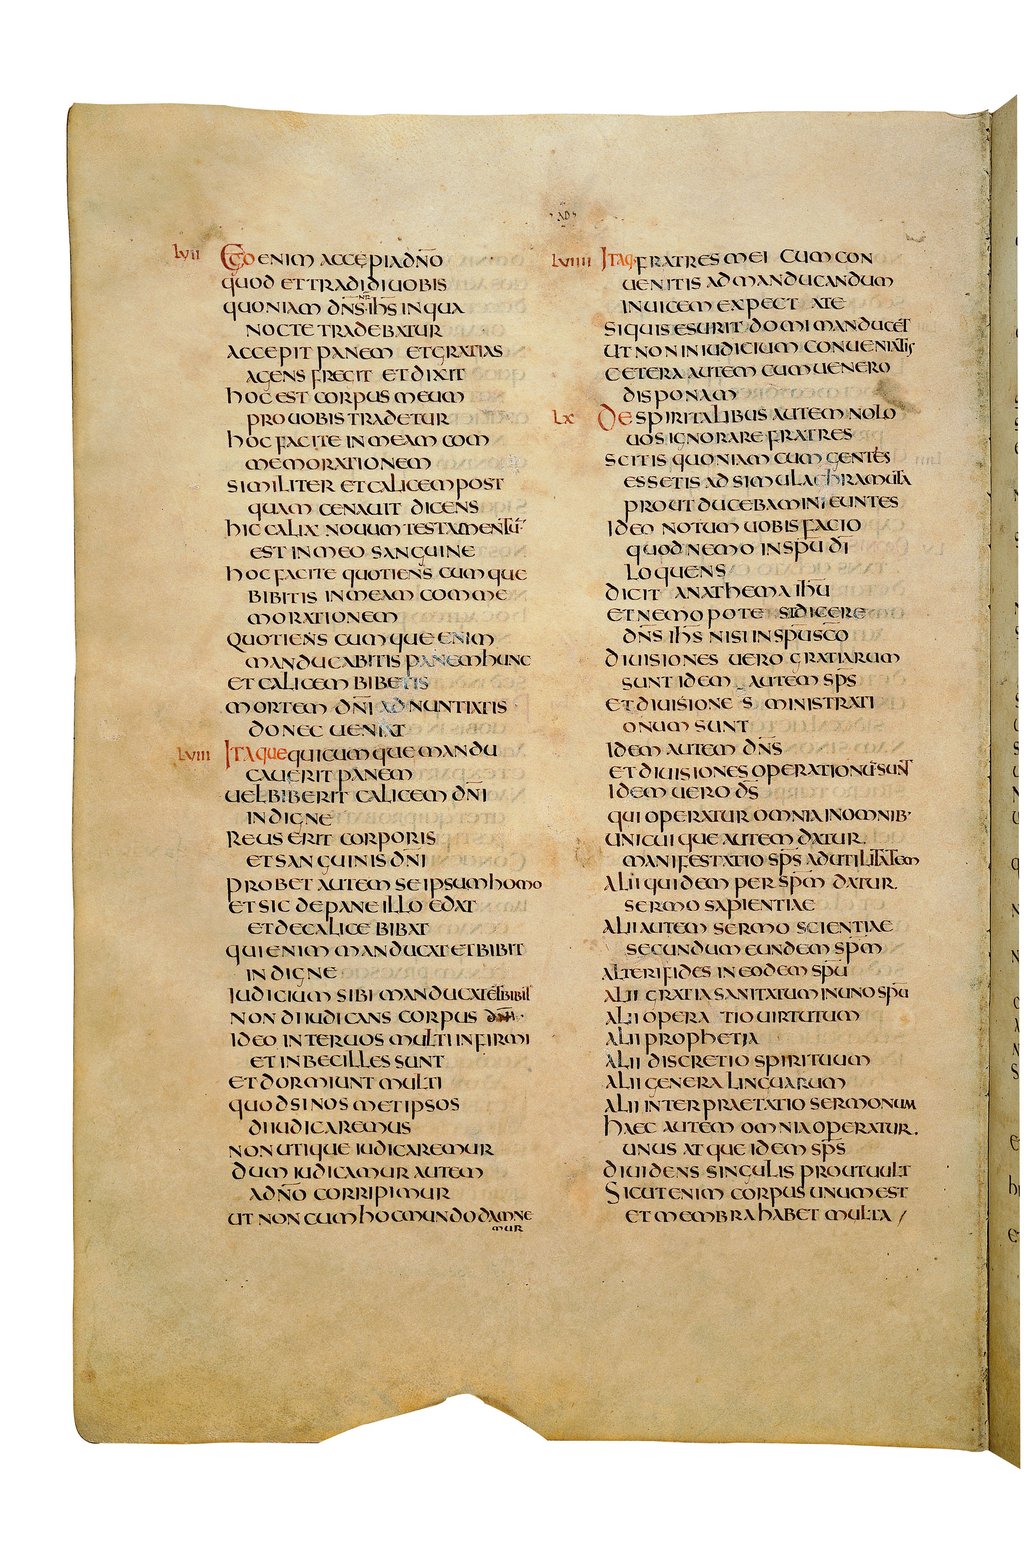 ·AD·
LVII EGO ENIM ACCEPI A DÑO
QUOD ET TRADIDI UOBIS
QUONIAM DÑS IHS IN QUA
NOCTE TRADEBATUR
ACCEPIT PANEM ET GRATIAS
AGENS FREGIT ET DIXIT
HOC EST CORPUS MEUM
PRO UOBIS TRADETUR
HOC FACITE IN MEAM COM
MEMORATIONEM
SIMILITER ET CALICEM POST
QUAM CENAUIT DICENS
HIC CALIX NOUUM TESTAMENTŪ
EST IN MEO SANGUINE
HOC FACITE QUOTIENS CUMQUE
BIBITIS IN MEAM COMME
MORATIONEM
QUOTIENS CUMQUE ENIM
MANDUCABITIS PANEM HUNC
ET CALICEM BIBETIS
MORTEM DÑI ADNUNTIATIS
DONEC UENIAT
LVIII ITAQUE QUICUMQUE MANDU
CAUERIT PANEM
UEL BIBERIT CALICEM DÑI
INDIGNE
REUS ERIT CORPORIS
ET SANGUINIS DÑI
PROBET AUTEM SE IPSUM HOMO
ET SIC DE PANE ILLO EDAT
ET DE CALICE BIBAT
QUI ENIM MANDUCAT ET BIBIT
INDIGNE
IUDICIUM SIBI MANDUCAT ET BIBIT
NON DIIUDICANS CORPUS DÑI·
IDEO INTER UOS MULTI INFIRMI
ET INBECILLES SUNT
ET DORMIUNT MULTI
QUOD SI NOS MET IPSOS
DIIUDICAREMUS
NON UTIQUE IUDICAREMUR
DUM IUDICAMUR AUTEM
A DÑO CORRIPIMUR
UT NON CUM HOC MUNDO DAMNE
MUR
LVIIII ITAQ· FRATRES MEI CUM CON
UENITIS AD MANDUCANDUM
INUICEM EXPECTATE
SI QUIS ESURIT DOMI MANDUCET
UT NON IN IUDICIUM CONUENIATIS
CETERA AUTEM CUM UENERO
DISPONAM
LX DE SPIRITALIBUS AUTEM NOLO
UOS IGNORARE FRATRES
SCITIS QUONIAM CUM GENTES
ESSETIS AD SIMULACHRA MUTA
PROUT DUCEBAMINI EUNTES
IDEO NOTUM UOBIS FACIO
QUOD NEMO IN SPŪ DĪ
LOQUENS
DICIT ANATHEMA IHŪ
ET NEMO POTEST DICERE
DÑS IHS NISI IN SPŪ SCŌ
DIUISIONES UERO GRATIARUM
SUNT IDEM AUTEM SPS
ET DIUISIONES MINISTRATI
ONUM SUNT
IDEM AUTEM DÑS
ET DIUISIONES OPERATIONŪ SUNT
IDEM UERO DS
QUI OPERATUR OMNIA IN OMNIB·
UNICUIQUE AUTEM DATUR
MANIFESTATIO SPS AD UTILITATEM
ALII QUIDEM PER SPM DATUR
SERMO SAPIENTIAE
ALII AUTEM SERMO SCIENTIAE
SECUNDUM EUNDEM SPM
ALTERI FIDES IN EODEM SPŪ
ALII GRATIA SANITATUM IN UNO SPŪ
ALII OPERATIO UIRTUTUM
ALII PROPHETIA
ALII DISCRETIO SPIRITUUM
ALII GENERA LINGUARUM
ALII INTERPRAETATIO SERMONUM
HAEC AUTEM OMNIA OPERATUR.
UNUS ATQUE IDEM SPS
DIUIDENS SINGULIS PROUT UULT
SICUT ENIM CORPUS UNUM EST
ET MEMBRA HABET MULTA /